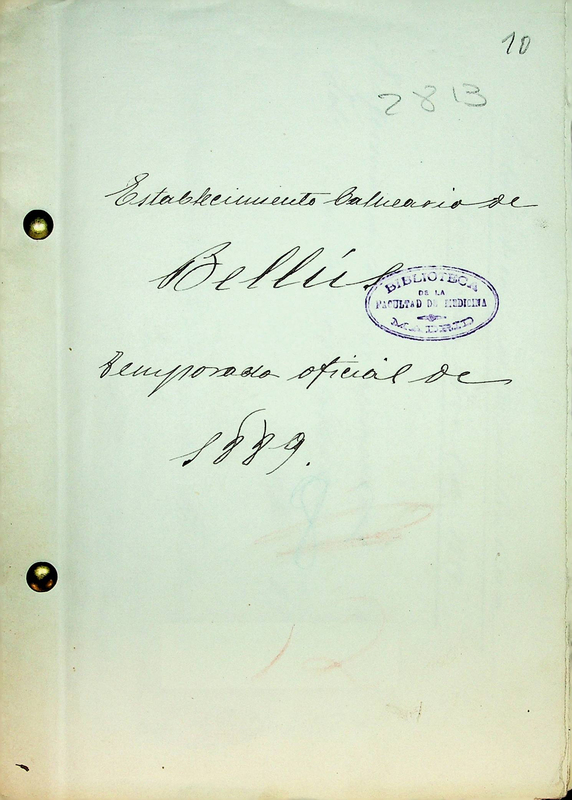 10
2813
Establecimiento balneario de
Bellús
BIBLIOTECA
DE LA
FACULTAD DE MEDICINA
MADRID
temporada oficial de
1889.